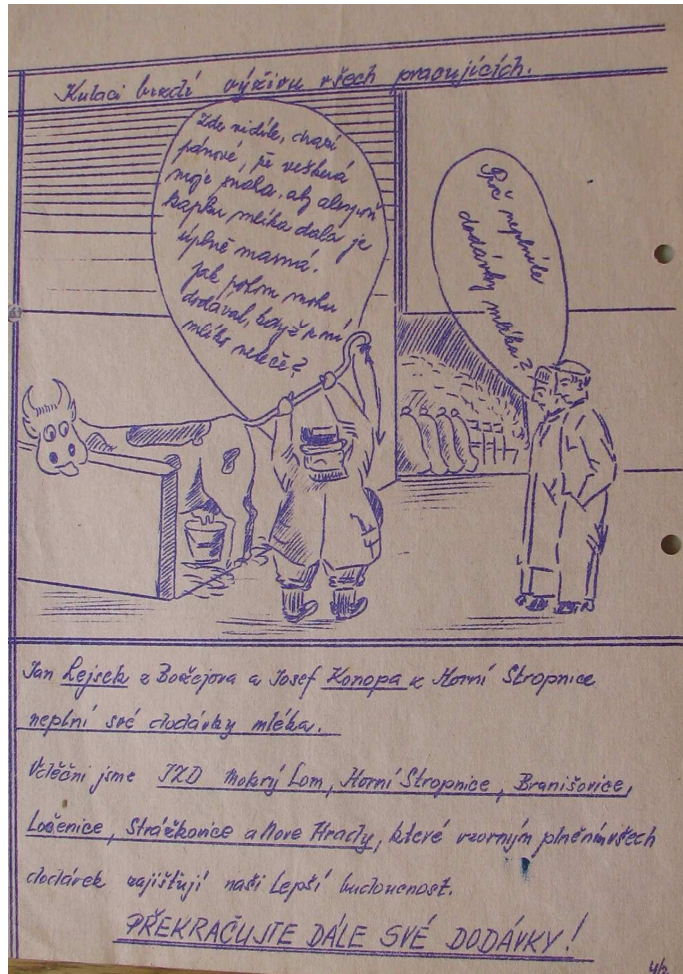 Kulaci brzdí výživu všech pracujících.
Zde vidíte, drazí
pánové, že veškerá
moje snaha, aby alespoň
kapku mléka dala je
úplně marná.
Jak potom mohu
dodávat, když z ní
mléko neteče?
Proč neplníte
dodávky mléka?
Jan Lejsek z Božejova a Josef Konopa z Horní Stropnice
neplní své dodávky mléka.
Vděčni jsme JZD Mokrý Lom, Horní Stropnice, Branišovice,
Ločenice, Strážkovice a Nove Hrady, které vzorným plněním všech
dodávek zajišťují naši lepší budoucnost.
PŘEKRAČUJTE DÁLE SVÉ DODÁVKY!